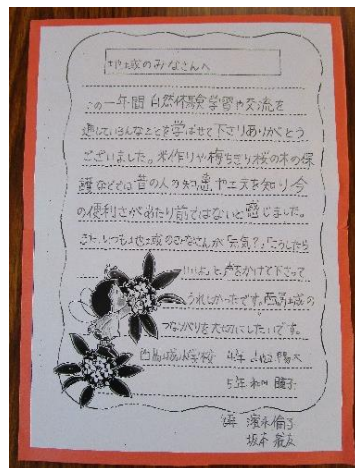 地域のみなさんへ
この一年間自然体験学習や交流を
通していろんなことを学ばせて下さりありがとう
ございました。米作りや梅ちぎり桜の木の保
護などでは昔の人の知恵や工夫を知り今
の便利さがあたり前ではないと感じました。
また、いつも地域のみなさんが「元気?」「こうしたら
いいよ」と声をかけて下さって
うれしかったです。西馬城の
つながりを大切にしたいです。
西馬城小学校 4年
5年
濱永倫子
坂本